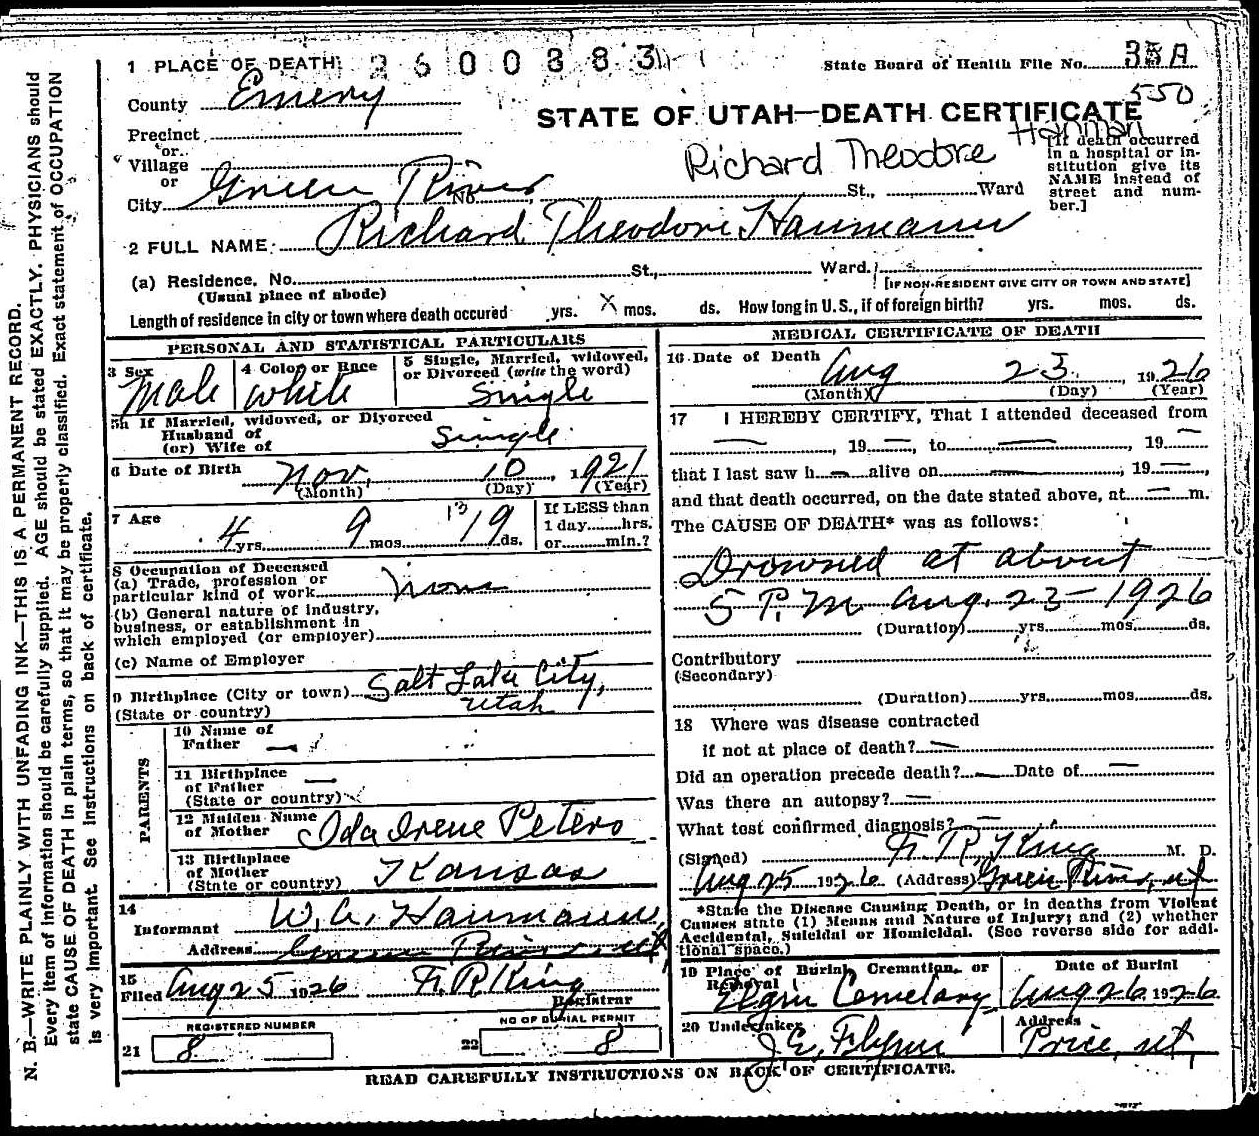 1 PLACE OF DEATH 2600383
State Board of Health File No. 35A
550
County Emery
STATE OF UTAH—DEATH CERTIFICATE
Precinct
or
Village
or
City Green River No. St., Ward
Richard Theodore Hanman
[If death occurred in a hospital or institution give its NAME instead of street and number.]
2 FULL NAME Richard Theodore Haumann
(a) Residence. No. St., Ward.
(Usual place of abode) [IF NON-RESIDENT GIVE CITY OR TOWN AND STATE]
Length of residence in city or town where death occured yrs. X mos. ds. How long in U.S., if of foreign birth? yrs. mos. ds.
PERSONAL AND STATISTICAL PARTICULARS
3 Sex Male
4 Color or Race White
5 Single, Married, widowed, or Divorced (write the word) Single
5a If Married, widowed, or Divorced
Husband of
(or) Wife of Single
6 Date of Birth Nov. 10, 1921
(Month) (Day) (Year)
7 Age 4 yrs. 9 mos. 13 19 ds.
If LESS than
1 day hrs.
or min.?
8 Occupation of Deceased
(a) Trade, profession or
particular kind of work None
(b) General nature of industry,
business, or establishment in
which employed (or employer)
(c) Name of Employer
9 Birthplace (City or town) Salt Lake City,
(State or country) Utah
PARENTS
10 Name of
Father —
11 Birthplace
of Father —
(State or country)
12 Maiden Name
of Mother Ida Irene Peters
13 Birthplace
of Mother
(State or country) Kansas
14
Informant W. A. Haumann
Address Green River Ut
15
Filed Aug 25 1926 F. R. King
Registrar
REGISTERED NUMBER
21 8
NO OF BURIAL PERMIT
22 8
MEDICAL CERTIFICATE OF DEATH
16 Date of Death Aug 23, 1926
(Month) (Day) (Year)
17 I HEREBY CERTIFY, That I attended deceased from
— 19 —, to —, 19 —
that I last saw h — alive on —, 19 —,
and that death occurred, on the date stated above, at — m.
The CAUSE OF DEATH* was as follows:
Drowned at about
5 P.M Aug. 23-1926
(Duration) yrs. mos. ds.
Contributory
(Secondary)
(Duration) yrs. mos. ds.
18 Where was disease contracted
if not at place of death? —
Did an operation precede death? — Date of —
Was there an autopsy? —
What test confirmed diagnosis? —
(Signed) F. R. King M. D.
Aug 25 1926 (Address) Green River, Ut
*State the Disease Causing Death, or in deaths from Violent
Causes state (1) Means and Nature of Injury; and (2) whether
Accidental, Suicidal or Homicidal. (See reverse side for addi-
tional space.)
19 Place of Burial, Cremation, or
Removal Elgin Cemetary
Date of Burial
Aug 26 1926
20 Undertaker
J. E. Flynn
Address
Price, Ut,
READ CAREFULLY INSTRUCTIONS ON BACK OF CERTIFICATE.
N. B.—WRITE PLAINLY WITH UNFADING INK—THIS IS A PERMANENT RECORD.
Every item of information should be carefully supplied. AGE should be stated EXACTLY. PHYSICIANS should
state CAUSE OF DEATH in plain terms, so that it may be properly classified. Exact statement of OCCUPATION
is very important. See instructions on back of certificate.